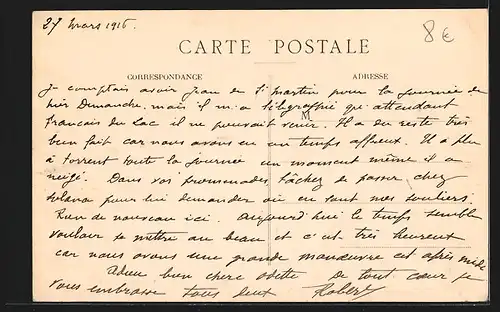 27 Mars 1916.
8€
CARTE POSTALE
CORRESPONDANCE
ADRESSE
M
Je comptais avoir Jean de St Martin pour la journée de
hier Dimanche, mais il m'a télégraphié qu'attendant
français du Lac il ne pouvait venir. Il a du reste très
bien fait car nous avons eu un temps affreux. Il a plu
à torrent toute la journée un moment même il a
neigé. Dans vos promenades, tâchez de passer chez
pour lui demander où en sont mes souliers.
Rien de nouveau ici. Aujourd'hui le temps semble
vouloir se mettre au beau et c'est très heureux
car nous avons une grande manœuvre cet après midi
Adieu bien chère Odette de tout cœur je
vous embrasse tous deux Robert